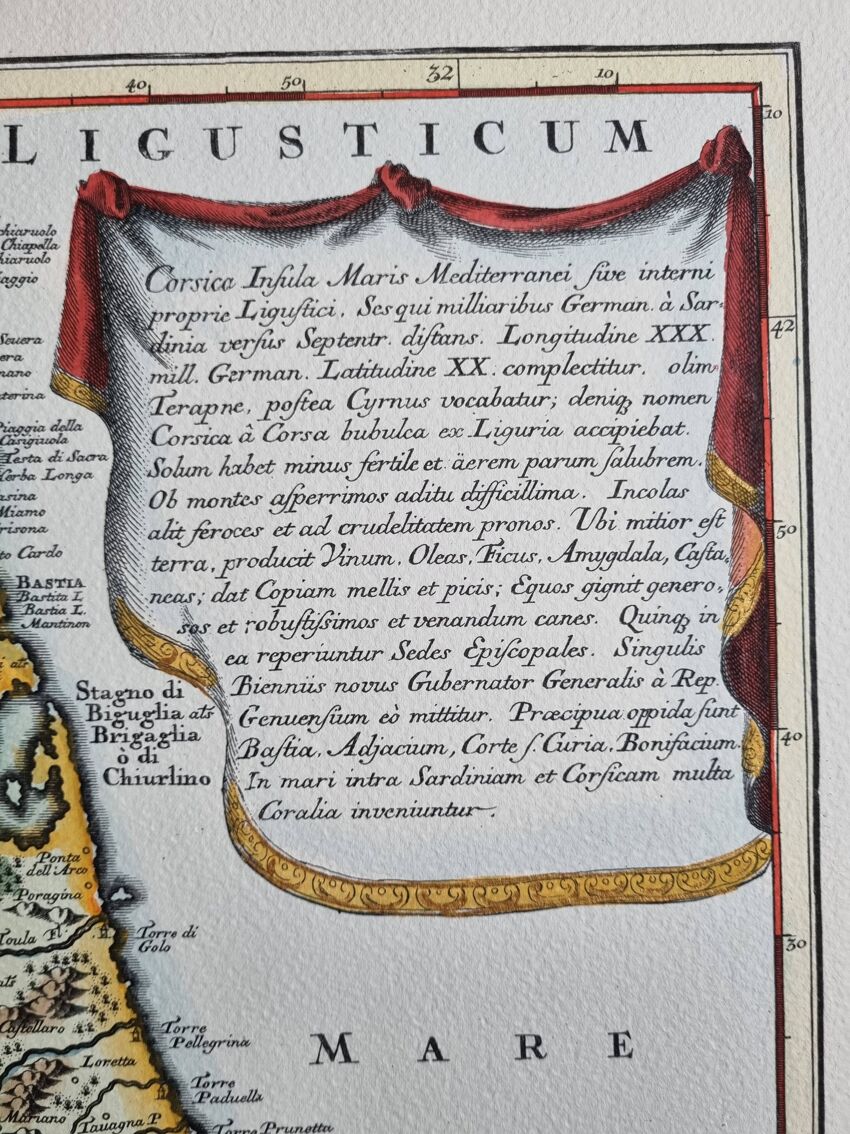 40 50 32 10
10
LIGUSTICUM
Chiapella
Corsica Inſula Maris Mediterranei ſive interni
proprie Liguſtici. Sesqui milliaribus German. à Sar-
dinia verſus Septentr. diſtans. Longitudine XXX.
mill. German. Latitudine XX. complectitur. olim
Terapne, poſtea Cyrnus vocabatur; deniqꝫ nomen
Corsica â Corsa bubulca ex Liguria accipiebat.
Solum habet minus fertile et äerem parum ſalubrem.
Ob montes aſperrimos aditu difficillima. Incolas
alit feroces et ad crudelitatem pronos. Ubi mitior eſt
terra, producit Vinum, Oleas, Ficus, Amygdala, Caſta,
neas; dat Copiam mellis et picis; Equos gignit genero,
sos et robuſtiſsimos et venandum canes. Quinqꝫ in
ea reperiuntur Sedes Epiſcopales. Singulis
Bienniis novus Gubernator Generalis à Rep.
Genuenſium eò mittitur. Præcipua oppida ſunt
Baſtia, Adjacium, Corte ſ. Curia, Bonifacium.
In mari intra Sardiniam et Corſicam multa
Coralia inveniuntur.
42
50
40
30
Piaggia della
Casigiuola
Testa di Sacra
Erba Longa
Miamo
to Cardo
BASTIA
Bastita L
Bastia L.
Mantinon
Stagno di
Biguglia als
Brigaglia
ò di
Chiurlino
Ponta
dell'Arco
Poragina
Toula Fl.
Torre di
Golo
Castellaro
Torre
Pellegrina
Loretta
Torre
Paduella
Mariano
Tavagna P
Torre Prunetta
MARE